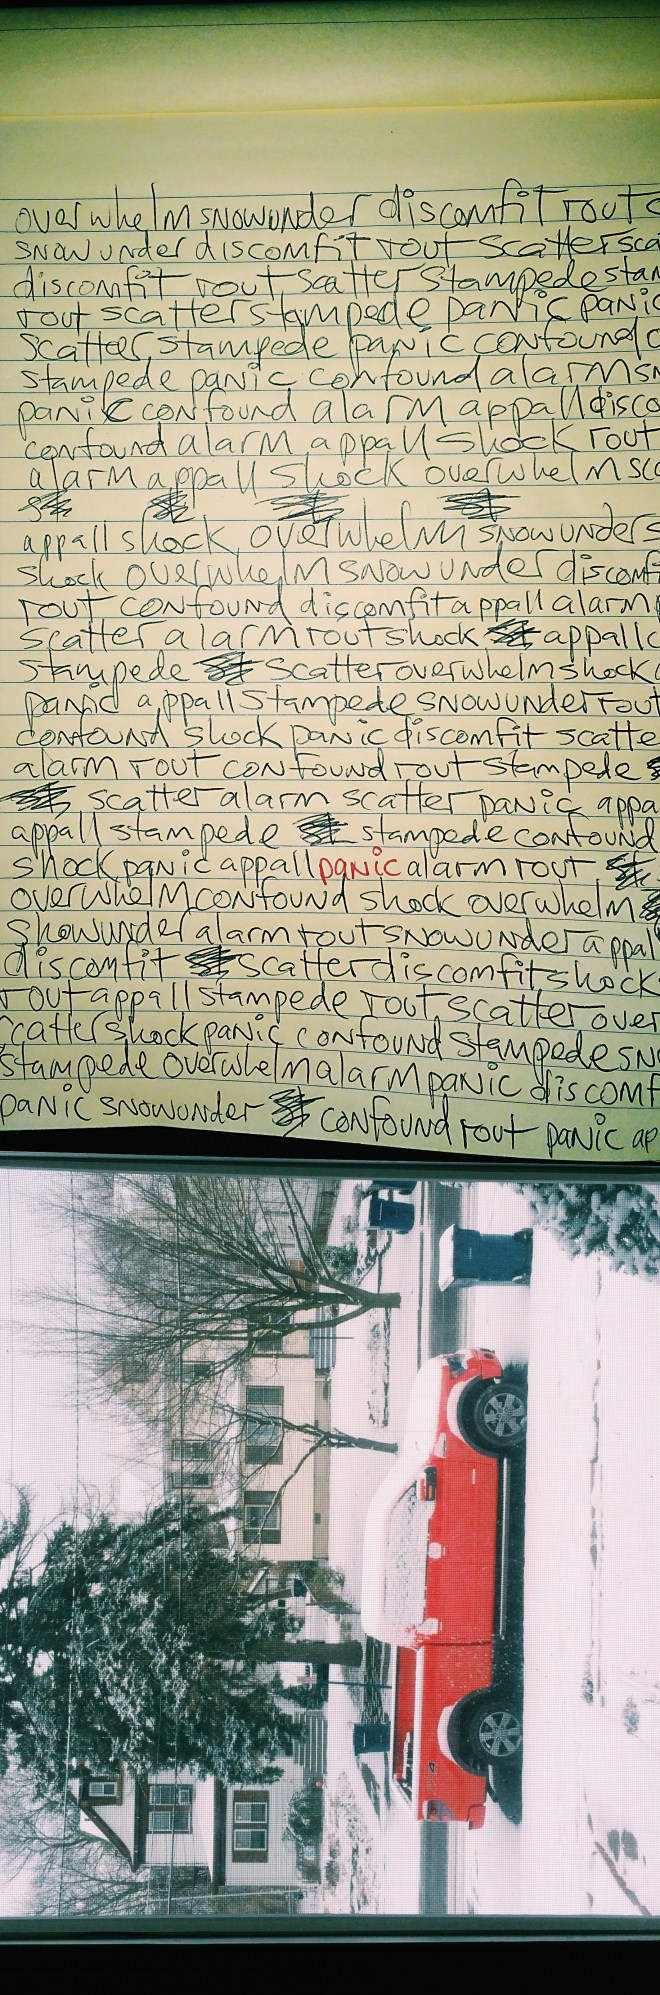 overwhelm snowunder discomfit rout
snowunder discomfit rout scatter sca
discomfit rout scatter stampede stam
rout scatter stampede panic panic
scatter stampede panic confound
stampede panic confound alarm sn
panic confound alarm appall disco
confound alarm appall shock rout
alarm appall shock overwhelm sc
appall shock overwhelm snowunder s
shock overwhelm snowunder discomfi
rout confound discomfit appall alarm
scatter alarm rout shock appall c
stampede scatter overwhelm shock
panic appall stampede snowunder rout
confound shock panic discomfit scatte
alarm rout confound rout stampede
scatter alarm scatter panic appa
appall stampede stampede confound
shock panic appall panic alarm rout
overwhelm confound shock overwhelm
snowunder alarm rout snowunder appal
discomfit scatter discomfit shock
rout appall stampede rout scatter over
scatter shock panic confound stampede sn
stampede overwhelm alarm panic discomf
panic snowunder confound rout panic ap